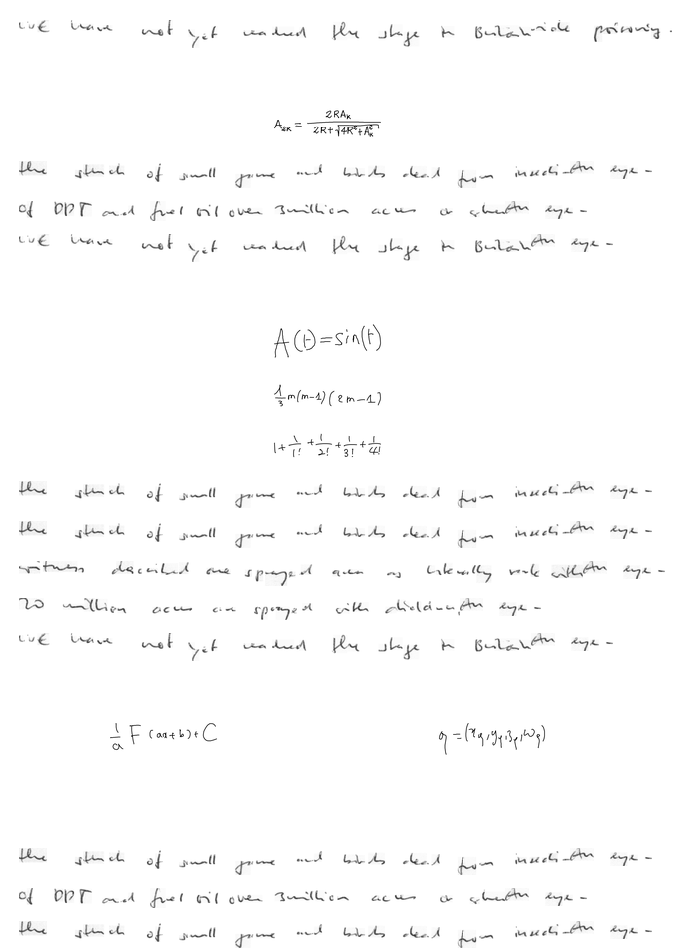 we have not yet reached the stage in Britain-side poisoning.
A_{4K} = \frac{2RA_K}{2R+\sqrt{4R^2+A_K^2}}
the stench of small game and birds dead from insecti-An eye-
of DDT and fuel oil over 3 million acres a when An eye-
we have not yet reached the stage in Britain An eye-
A(t)=sin(t)
\frac{1}{3}m(m-1)(2m-1)
1+\frac{1}{1!}+\frac{1}{2!}+\frac{1}{3!}+\frac{1}{4!}
the stench of small game and birds dead from insecti-An eye-
the stench of small game and birds dead from insecti-An eye-
witness described one sprayed area as literally reek with An eye-
20 million acres are sprayed with dieldrin, An eye-
we have not yet reached the stage in Britain An eye-
\frac{1}{a}F(ax+b)+C
q=(x_q,y_q,z_q,w_q)
the stench of small game and birds dead from insecti-An eye-
of DDT and fuel oil over 3 million acres a when An eye-
the stench of small game and birds dead from insecti-An eye-